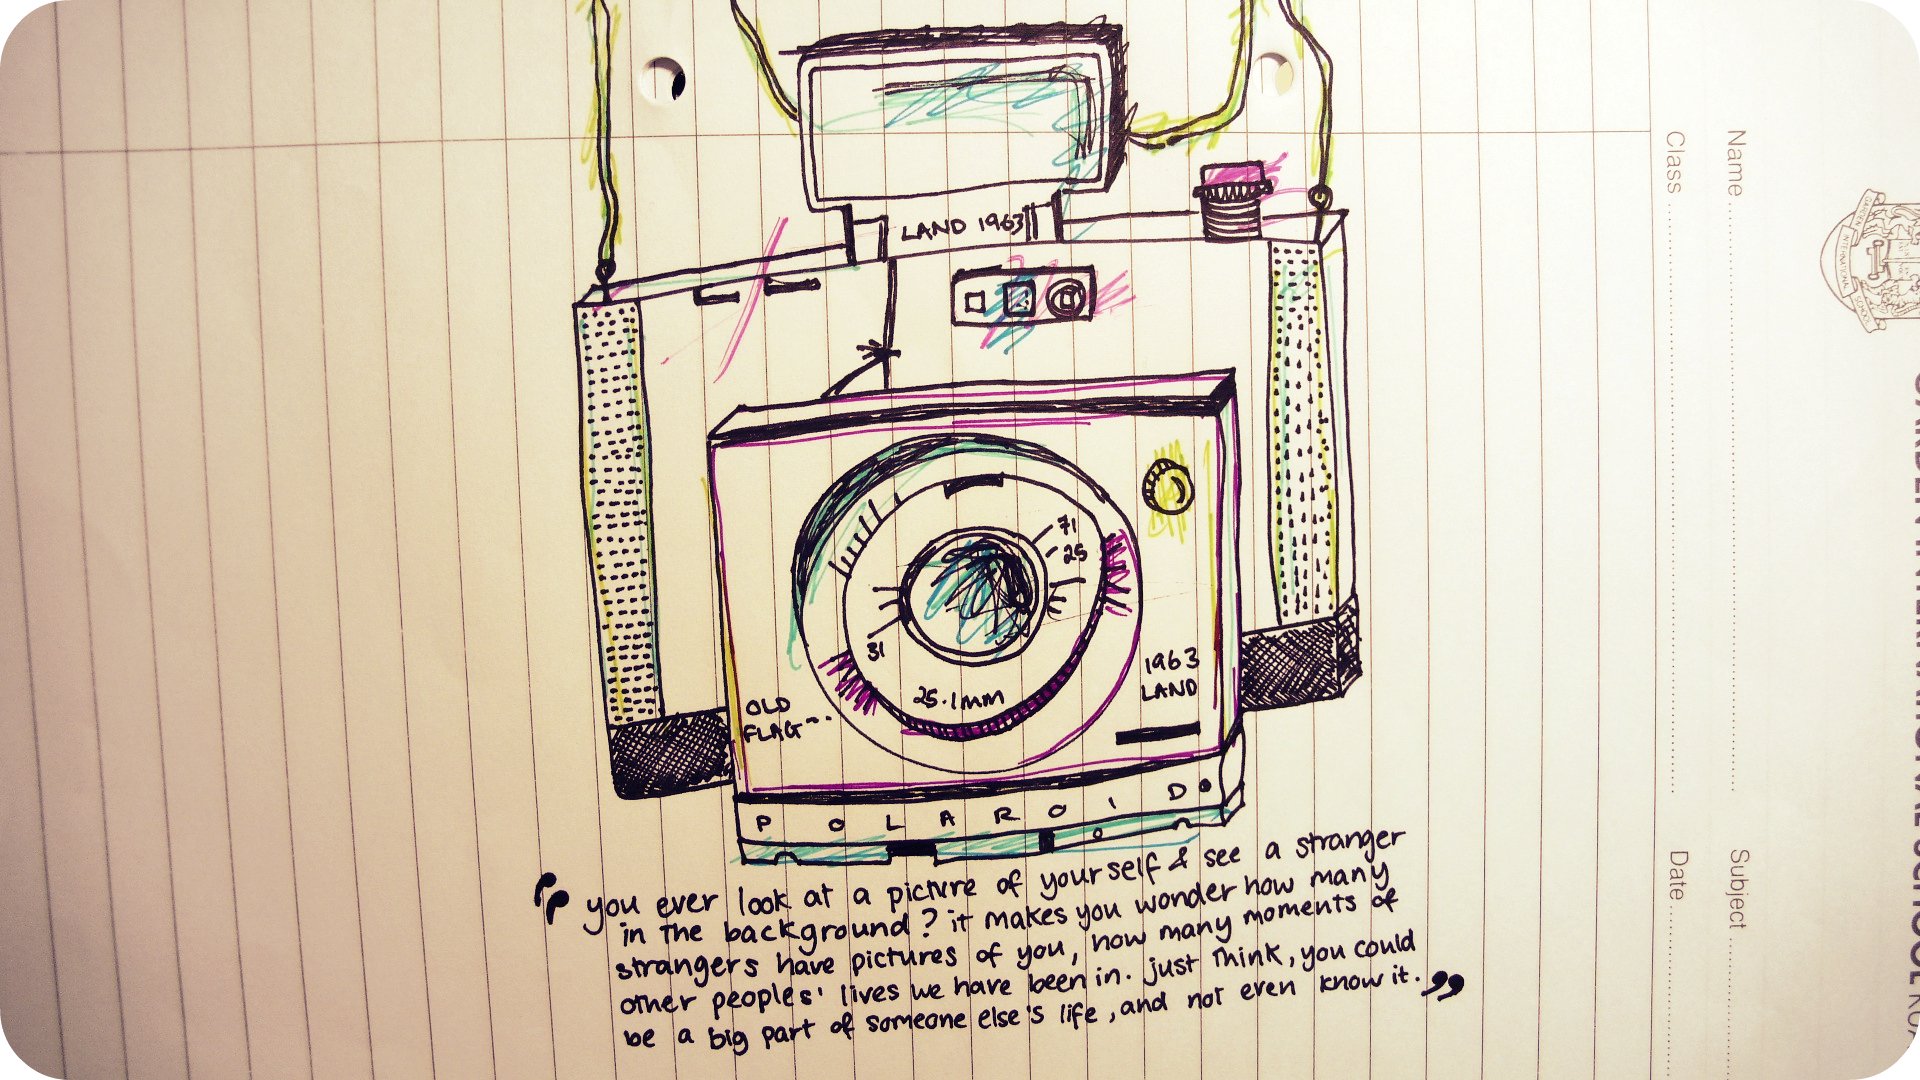 LAND 1963
71
25
31
25.1mm
1963
LAND
OLD
FLAG--
POLAROID
“you ever look at a picture of yourself & see a stranger
in the background? it makes you wonder how many
strangers have pictures of you, how many moments of
other peoples' lives we have been in. just think, you could
be a big part of someone else's life, and not even know it.”
Name
Class
Subject
Date
GARDEN INTERNATIONAL SCHOOL
GARDEN INTERNATIONAL SCHOOL